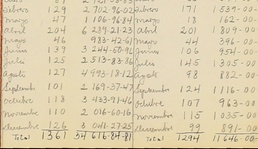 febrero 129 2,702-96-02 febrero 171 1539-00
marzo 47 1106-96-84 marzo 18 162-00
abril 204 6289-21-23 abril 201 1809-00
mayo 46 983-42-61 mayo 44 396-00
junio 139 3244-50-96 junio 106 954-00
julio 125 2513-83-86 julio 145 1305-00
agosto 127 4993-13-22 agosto 98 882-00
septiembre 101 2169-37-47 septiembre 124 1116-00
octubre 118 3433-91-46 octubre 107 963-00
noviembre 110 2016-60-16 noviembre 115 1035-00
diciembre 126 3041-27-25 diciembre 99 891-00
Total 1361 34616-84-81 Total 1294 11646-00